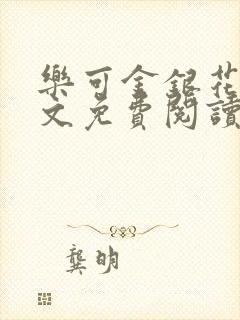 樂可金銀花
文免費閱讀
龔明